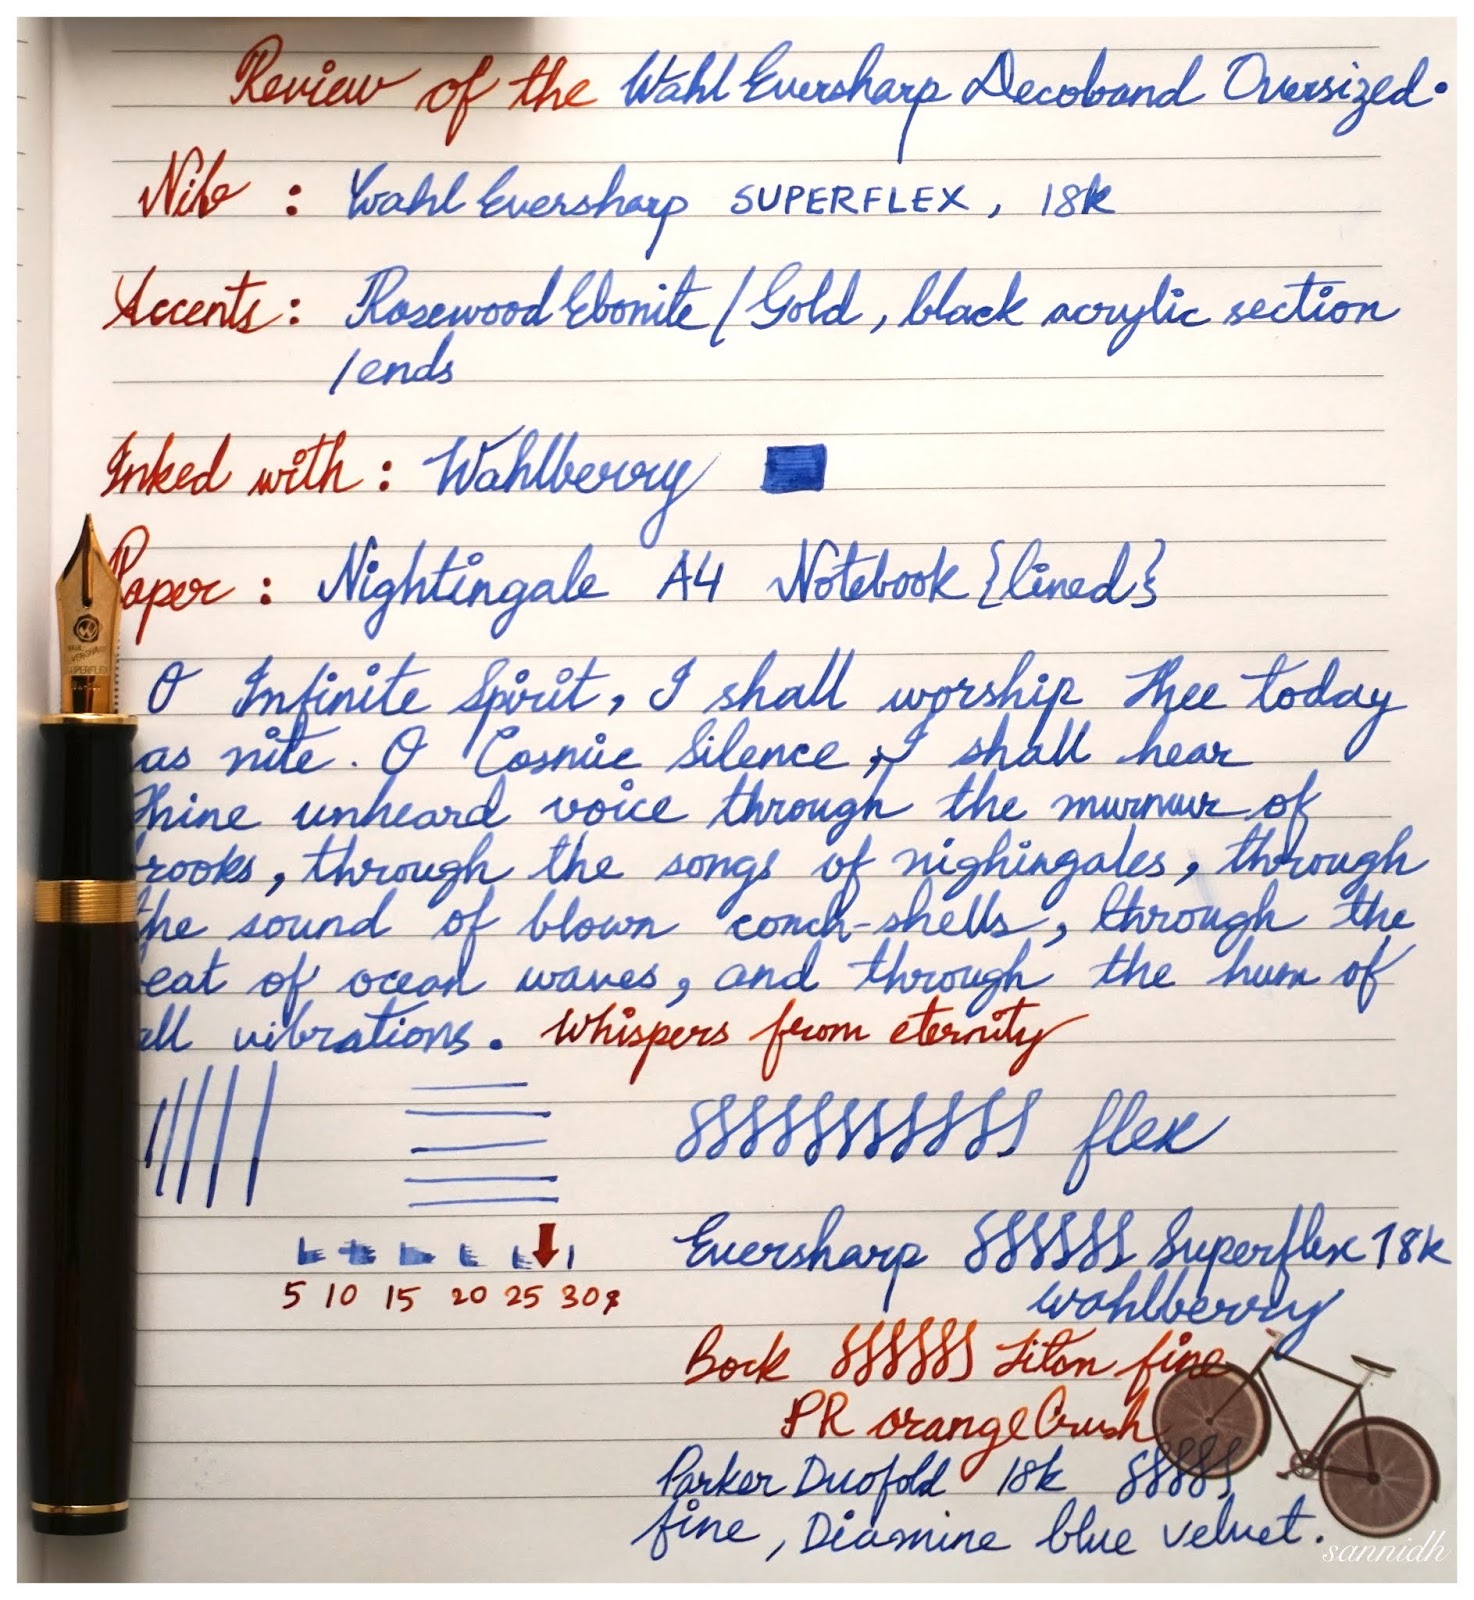 Review of the Wahl Eversharp Decoband Oversized.
Nib : Wahl Eversharp SUPERFLEX, 18k
Accents : Rosewood Ebonite / Gold, black acrylic section
/ends
Inked with : Wahlberry
Paper : Nightingale A4 Notebook {lined}
O Infinite Spirit, I shall worship Thee today
as nite. O Cosmic Silence, I shall hear
Thine unheard voice through the murmur of
rooks, through the songs of nighingales, through
the sound of blown conch-shells, through the
eat of ocean waves, and through the hum of
all vibrations. Whispers from eternity
flex
5 10 15 20 25 30s
Eversharp Superflex 18k
Wahlberry
Bock Titan fine
PR orange Crush
Parker Duofold 18k
fine, Diamine blue velvet.
sannidh
W
EVERSHARP
SUPERFLEX